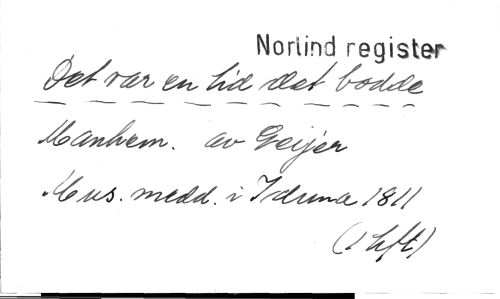 Norlind register
Det var en tid det bodde
Manhem. av Geijer
Mus. medd. i Iduna 1811
(1 hft)